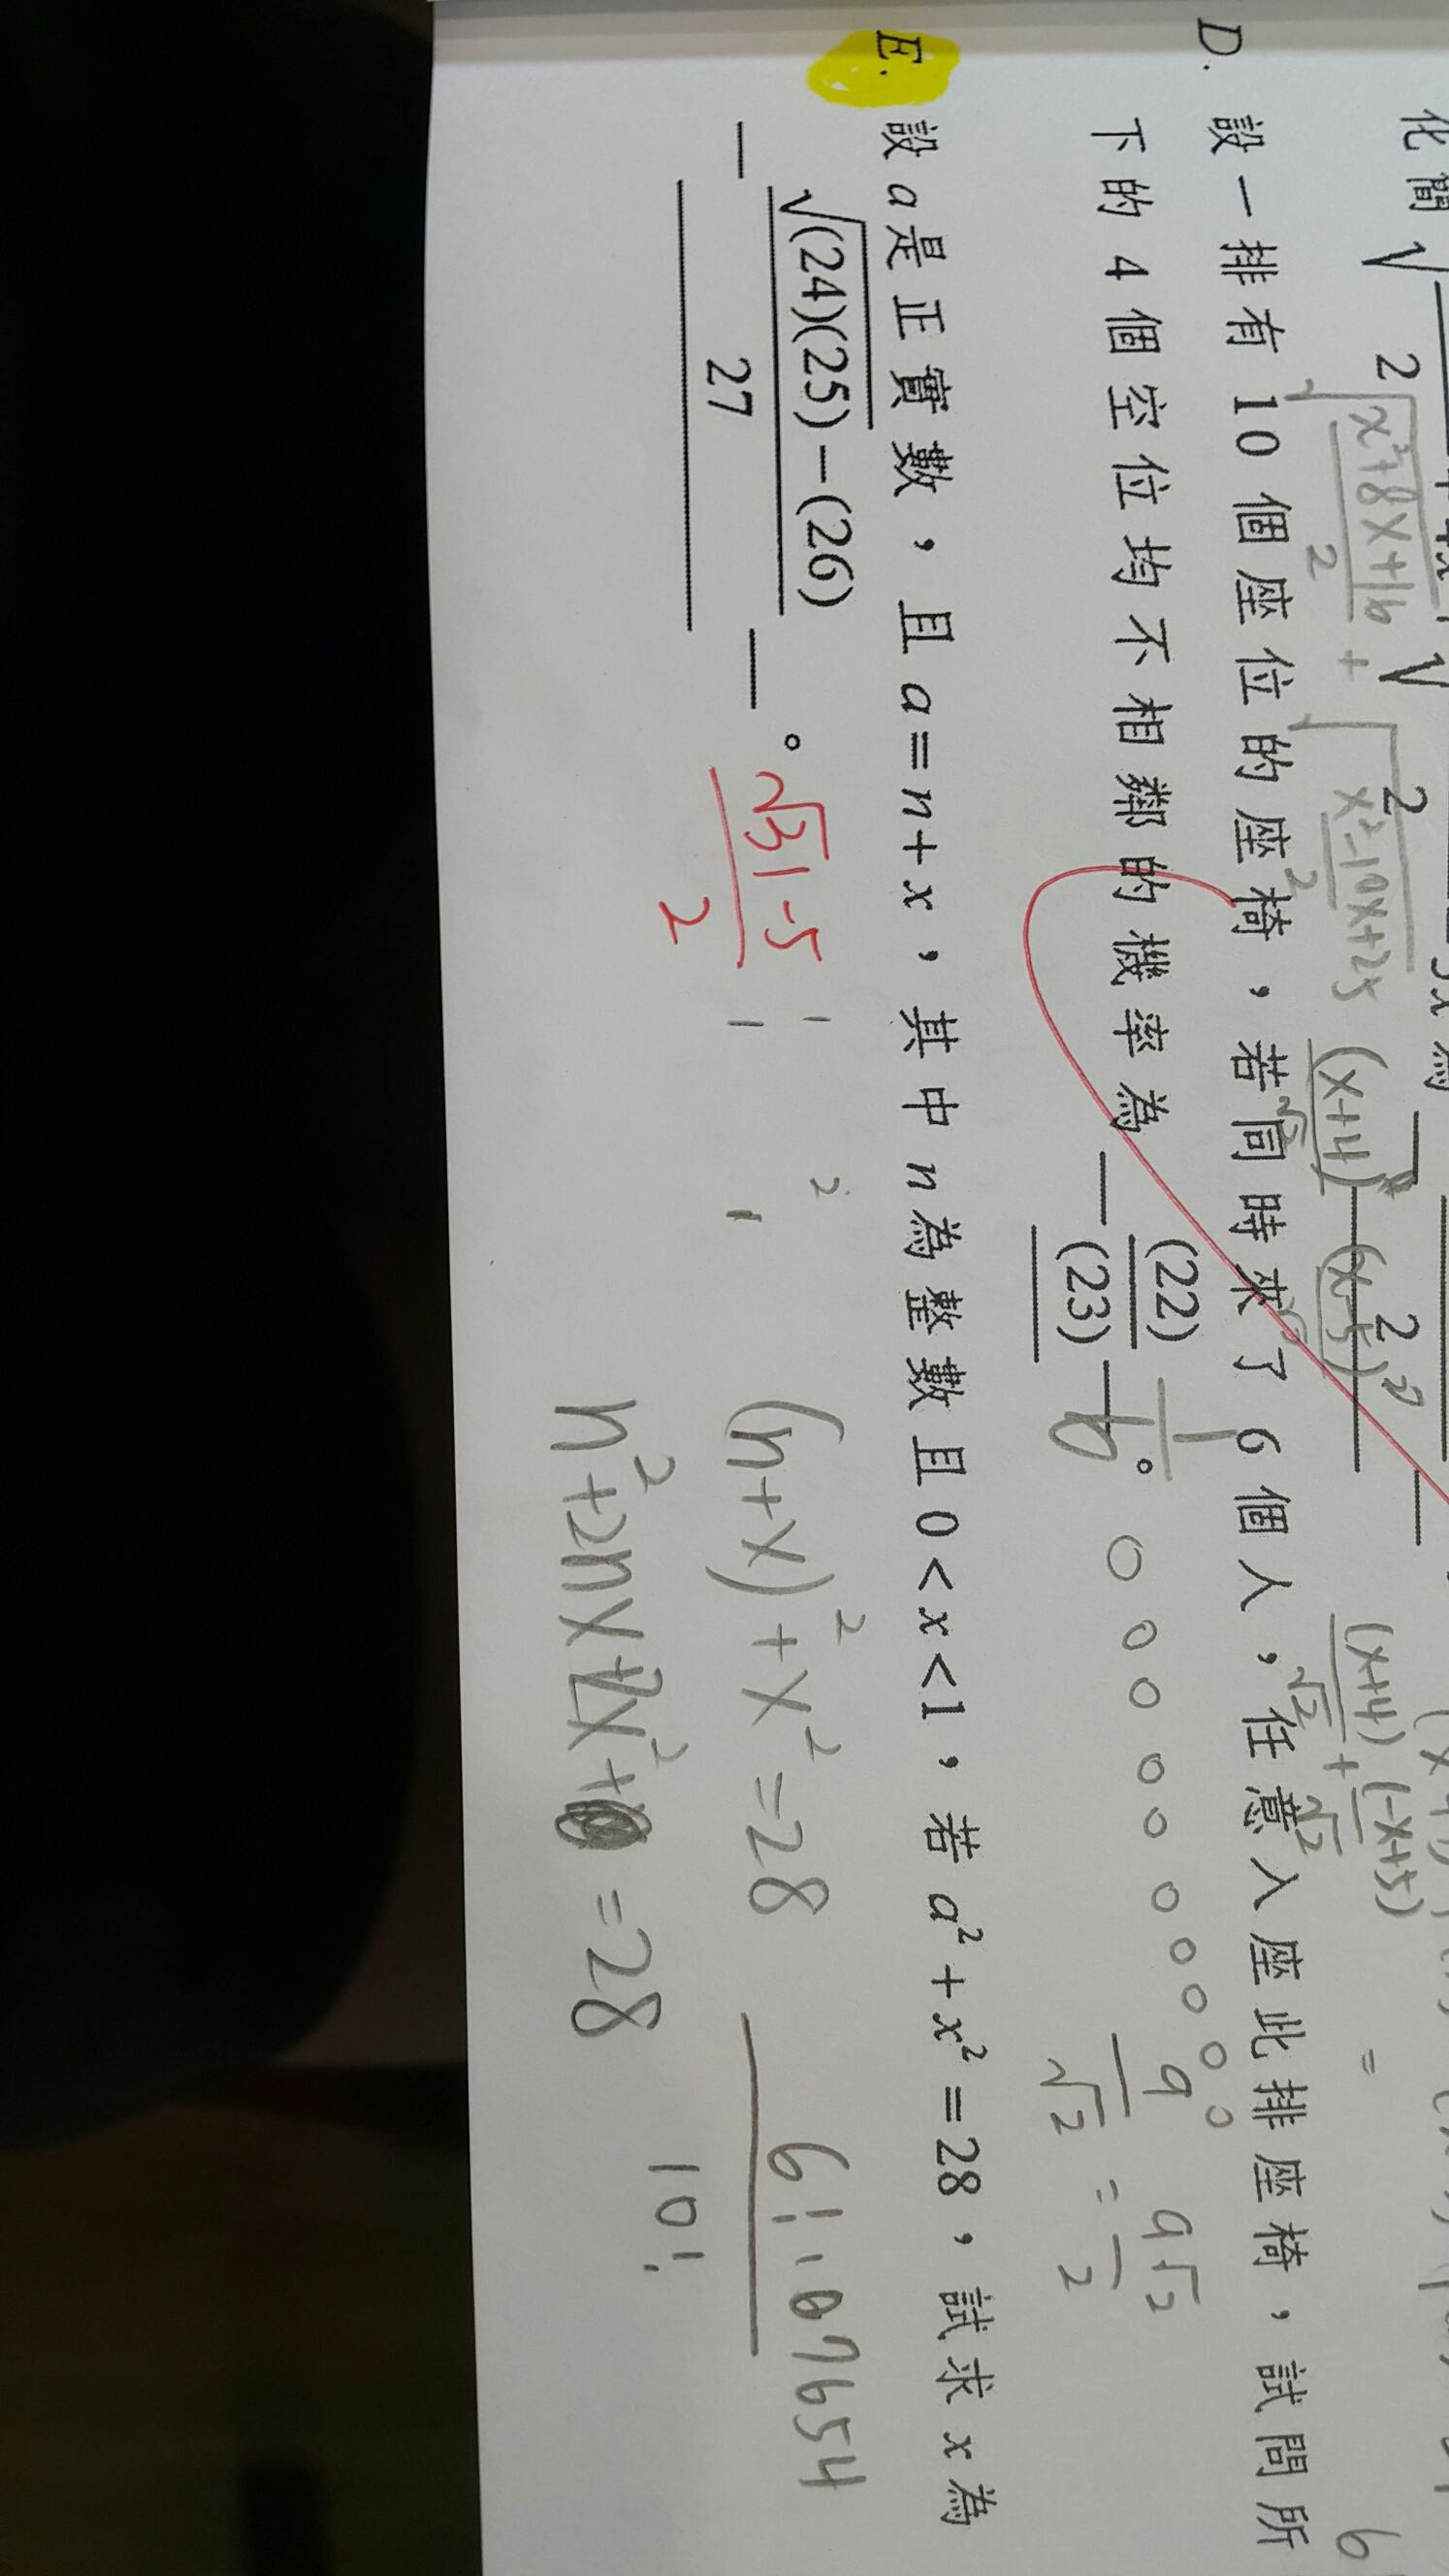 化簡
2 2 2
√x²+8x+16 + √x²-10x+25 (x+4)² (x-5)² (x+4) + (-x+5) =
2 2 √2 √2 √2
D. 設一排有 10 個座位的座椅，若同時來了 6 個人，任意入座此排座椅，試問所
下的 4 個空位均不相鄰的機率為 (22)/(23) 。 1/6
9/√2 = 9√2/2
E. 設 a 是正實數，且 a=n+x，其中 n 為整數且 0<x<1，若 a²+x²=28，試求 x 為
√(24)(25)-(26)
27 。
√31-5
2
(n+x)²+x²=28
n²+2nx+2x²+ =28
6! 107654
10!